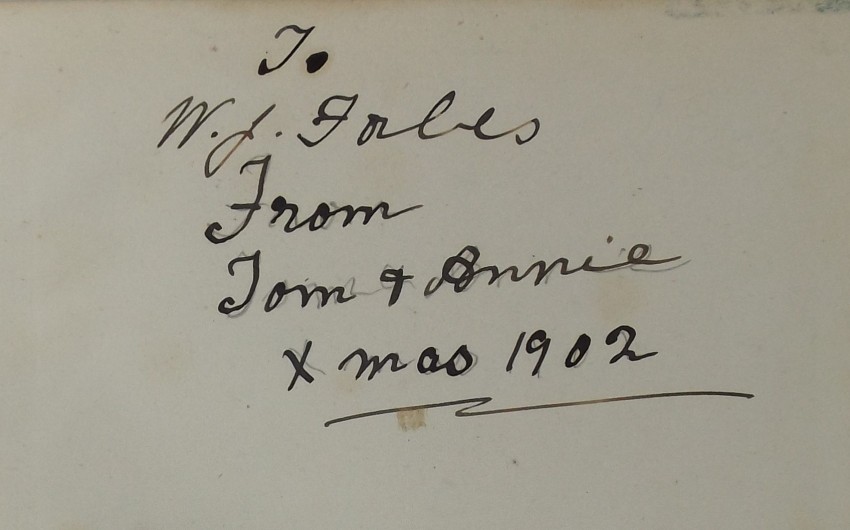 To
W. J. Forbes
From
Tom & Annie
Xmas 1902